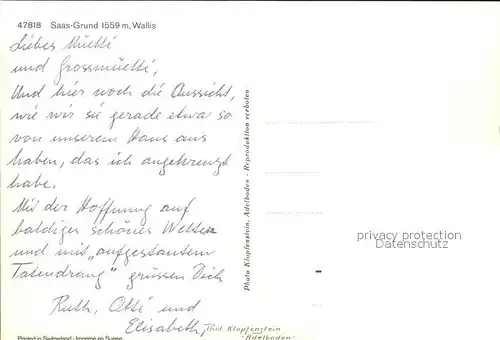 47818 Saas-Grund 1559 m, Wallis
Liebes Müetti
und Grossmüetti,
Und hier noch die Aussicht,
wie wir sie gerade etwa so
von unserem Haus aus
haben, das ich angekreuzt
habe.
Mit der Hoffnung auf
baldiges schönes Wetter
und mit „aufgestautem
Tatendrang“ grüssen Dich
Ruth, Otti und
Elisabeth
Printed in Switzerland - Imprimé en Suisse
Phot. Klopfenstein
-Adelboden-
Photo Klopfenstein, Adelboden - Reproduktion verboten
privacy protection
Datenschutz